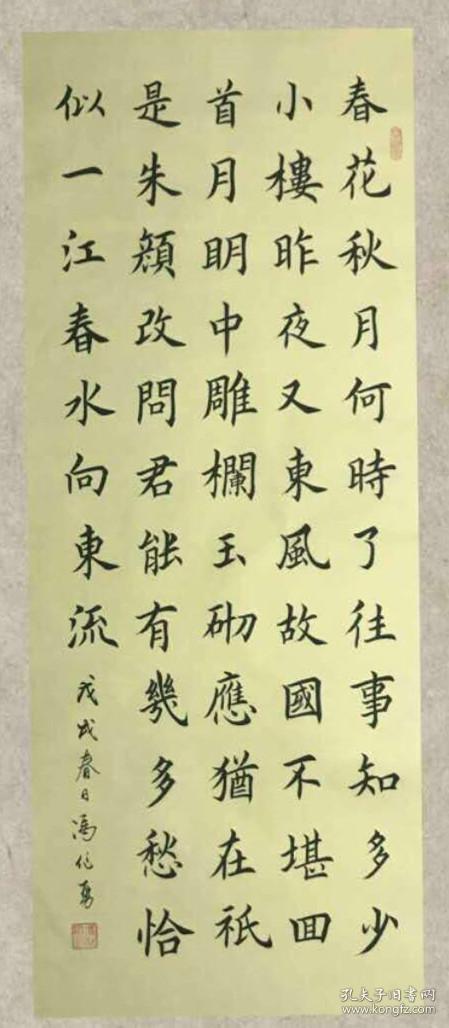 春花秋月何時了往事知多少
小樓昨夜又東風故國不堪囬
首月眀中雕欄玉砌應猶在祇
是朱顔改問君能有幾多愁恰
似一江春水向東流
戊戌春日馮
孔夫子旧书网
kongfz.com